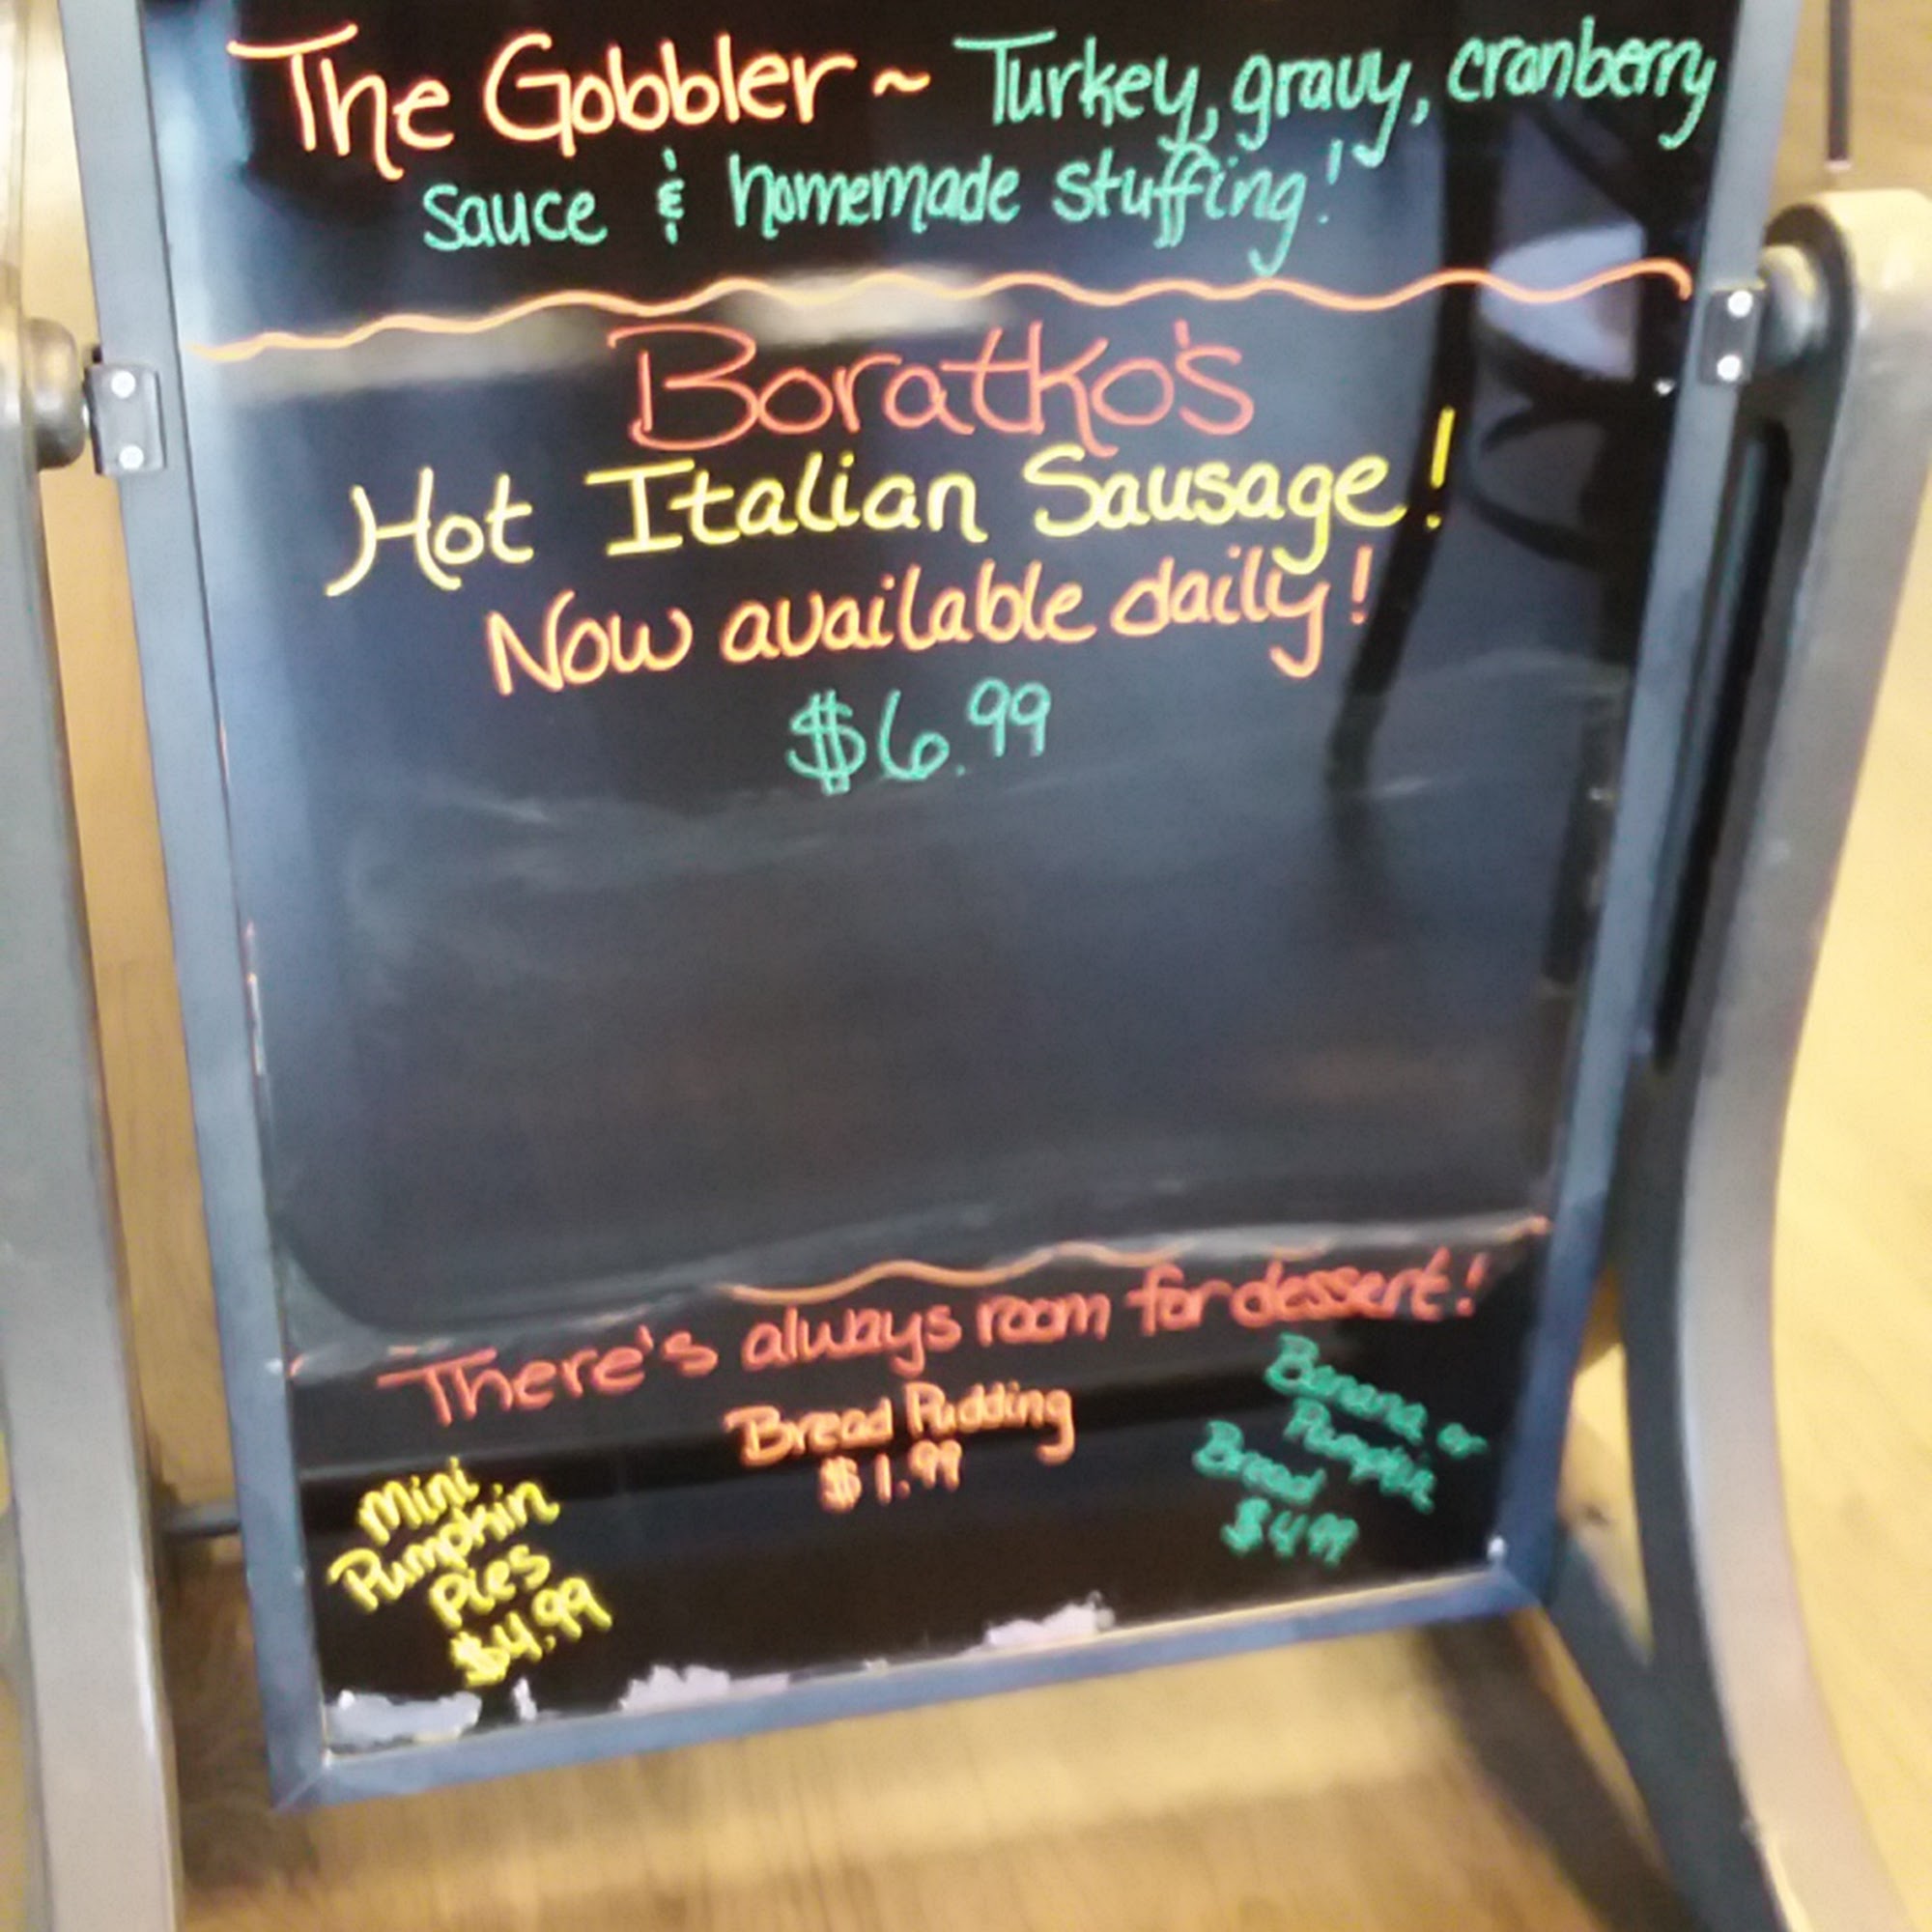 The Gobbler ~ Turkey, gravy, cranberry
sauce & homemade stuffing!
Boratko's
Hot Italian Sausage!
Now available daily!
$6.99
There's always room for dessert!
Mini
Pumpkin
Pies
$4.99
Bread Pudding
$1.99
Banana or
Pumpkin
Bread
$4.99